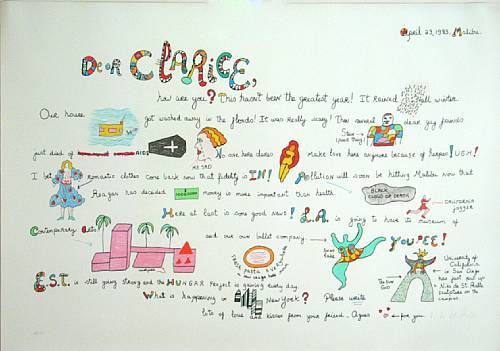 April 23, 1983. Malibu.
Dear CLARICE,
how are you? This hasn't been the greatest year! It rained all winter
Our house got washed away in the floods! It was really scary! Then several dear gay friends
Steve (Good Guy)
just died of AIDS No one here dares make love here anymore because of herpes! UGH!
ME SAD
I bet romantic clothes come back now that fidelity is IN! Pollution will soon be hitting Malibu now that
Reagan has decided money is more important than health
BLACK CLOUD OF DEATH
CALIFORNIA JOGGER
Here at last is some good news! L.A. is going to have its museum of
Contemporary Art and our own ballet company YOUPEE!
PASTA
University of California in San Diego has just put up Niki de St. Phalle sculpture on the campus.
The Sun God
E.S.T. is still going strong and the HUNGER Project is gaining every day.
What is happening in New York? Please write
lots of love and kisses from your friend Agnes for you